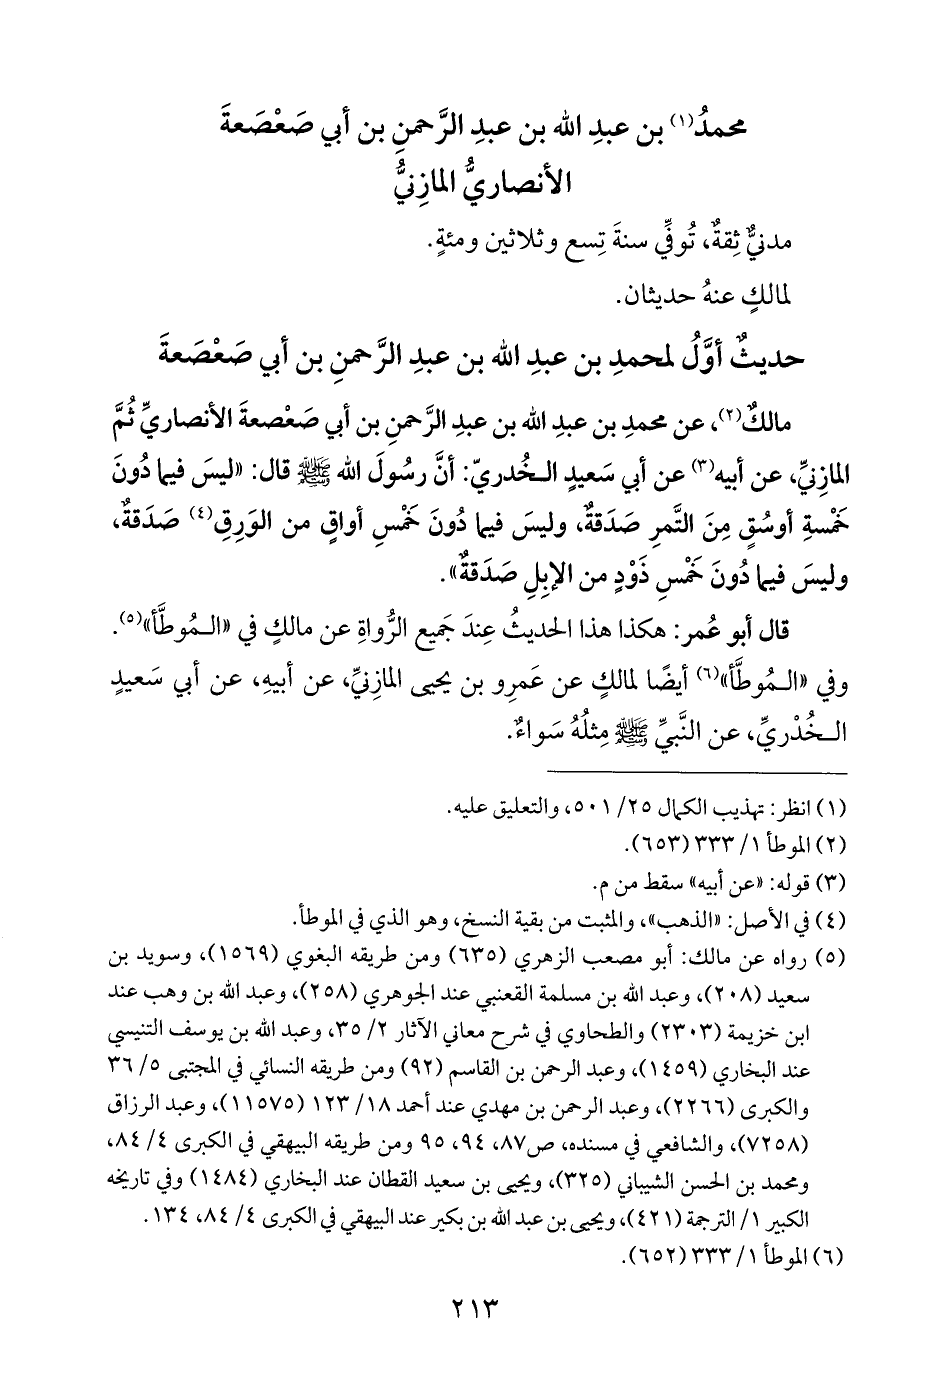 محمدُ(١) بن عبدِ الله بن عبدِ الرَّحمنِ بن أبي صَعْصَعةَ
الأنصاريُّ المازِنيُّ
مدنيٌّ ثِقةٌ، تُوفِّي سنةَ تِسع وثلاثين ومئةٍ.
لمالكٍ عنهُ حديثان.
حديثٌ أوَّلُ لمحمدِ بن عبدِ الله بن عبدِ الرَّحمنِ بن أبي صَعْصَعةَ
مالكٌ(٢)، عن محمدِ بن عبدِ الله بن عبدِ الرَّحمنِ بن أبي صَعْصعةَ الأنصاريِّ ثُمَّ
المازِنيِّ، عن أبيه(٣) عن أبي سَعيدٍ الـخُدريّ: أنَّ رسُولَ الله ﷺ قال: «ليسَ فيما دُونَ
خَمْسةِ أوسُقٍ مِنَ التَّمرِ صَدَقةٌ، وليسَ فيما دُونَ خَمْسِ أواقٍ من الوَرِقِ(٤) صَدَقةٌ،
وليسَ فيما دُونَ خَمْسِ ذَوْدٍ من الإبِلِ صَدَقةٌ».
قال أبو عُمر: هكذا هذا الحديثُ عِندَ جَميع الرُّواةِ عن مالكٍ في «الـمُوطَّأ»(٥).
وفي «الـمُوطَّأ»(٦) أيضًا لمالكٍ عن عَمرِو بن يحيى المازِنيِّ، عن أبيهِ، عن أبي سَعيدٍ
الـخُدْريِّ، عن النَّبيِّ ﷺ مِثلُهُ سَواءٌ.
(١) انظر: تهذيب الكمال ٢٥/ ٥٠١، والتعليق عليه.
(٢) الموطأ ١/ ٣٣٣ (٦٥٣).
(٣) قوله: «عن أبيه» سقط من م.
(٤) في الأصل: «الذهب»، والمثبت من بقية النسخ، وهو الذي في الموطأ.
(٥) رواه عن مالك: أبو مصعب الزهري (٦٣٥) ومن طريقه البغوي (١٥٦٩)، وسويد بن
سعيد (٢٠٨)، وعبد الله بن مسلمة القعنبي عند الجوهري (٢٥٨)، وعبد الله بن وهب عند
ابن خزيمة (٢٣٠٣) والطحاوي في شرح معاني الآثار ٢/ ٣٥، وعبد الله بن يوسف التنيسي
عند البخاري (١٤٥٩)، وعبد الرحمن بن القاسم (٩٢) ومن طريقه النسائي في المجتبى ٥/ ٣٦
والكبرى (٢٢٦٦)، وعبد الرحمن بن مهدي عند أحمد ١٨/ ١٢٣ (١١٥٧٥)، وعبد الرزاق
(٧٢٥٨)، والشافعي في مسنده، ص٨٧، ٩٤، ٩٥ ومن طريقه البيهقي في الكبرى ٤/ ٨٤،
ومحمد بن الحسن الشيباني (٣٢٥)، ويحيى بن سعيد القطان عند البخاري (١٤٨٤) وفي تاريخه
الكبير ١/ الترجمة (٤٢١)، ويحيى بن عبد الله بن بكير عند البيهقي في الكبرى ٤/ ٨٤، ١٣٤.
(٦) الموطأ ١/ ٣٣٣ (٦٥٢).
٢١٣